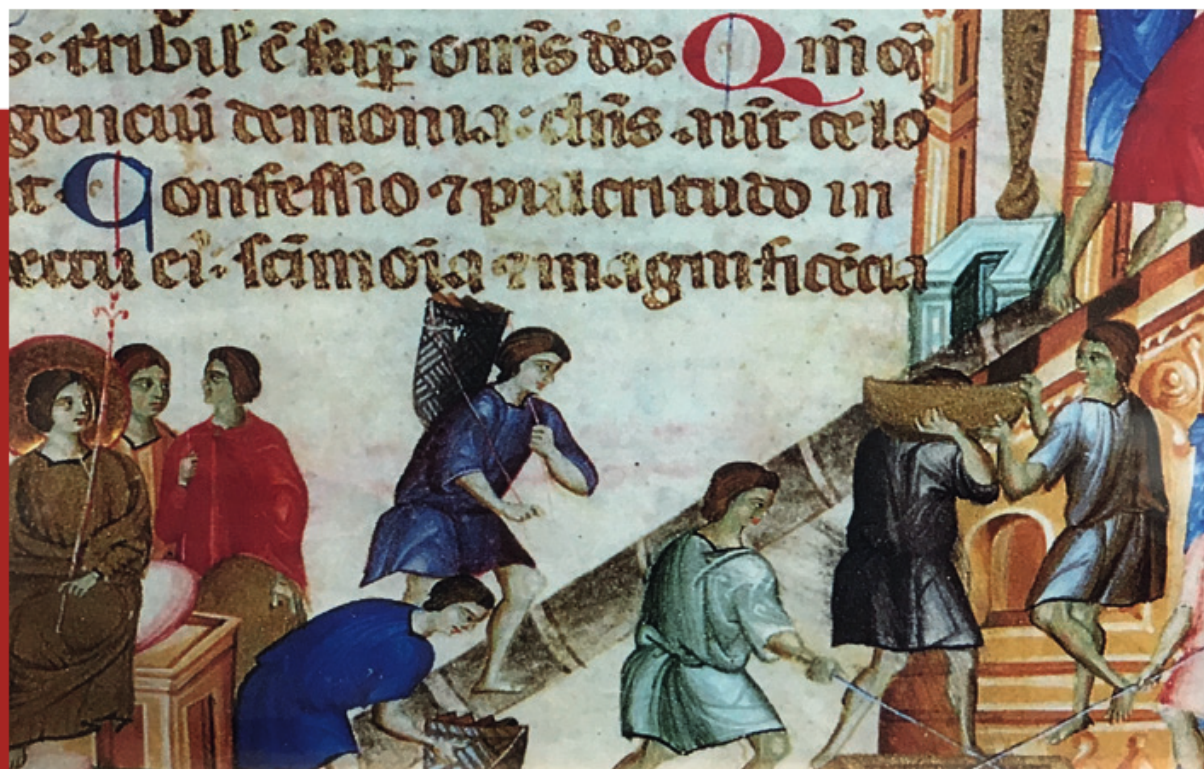 s: t̃ribil' ẽ sup om̃s dõs Qm̃
genciũ demonia: dñs aũt celo
Confessio ⁊ pulcritudo in
ei: scĩmõia ⁊ magnificẽcia